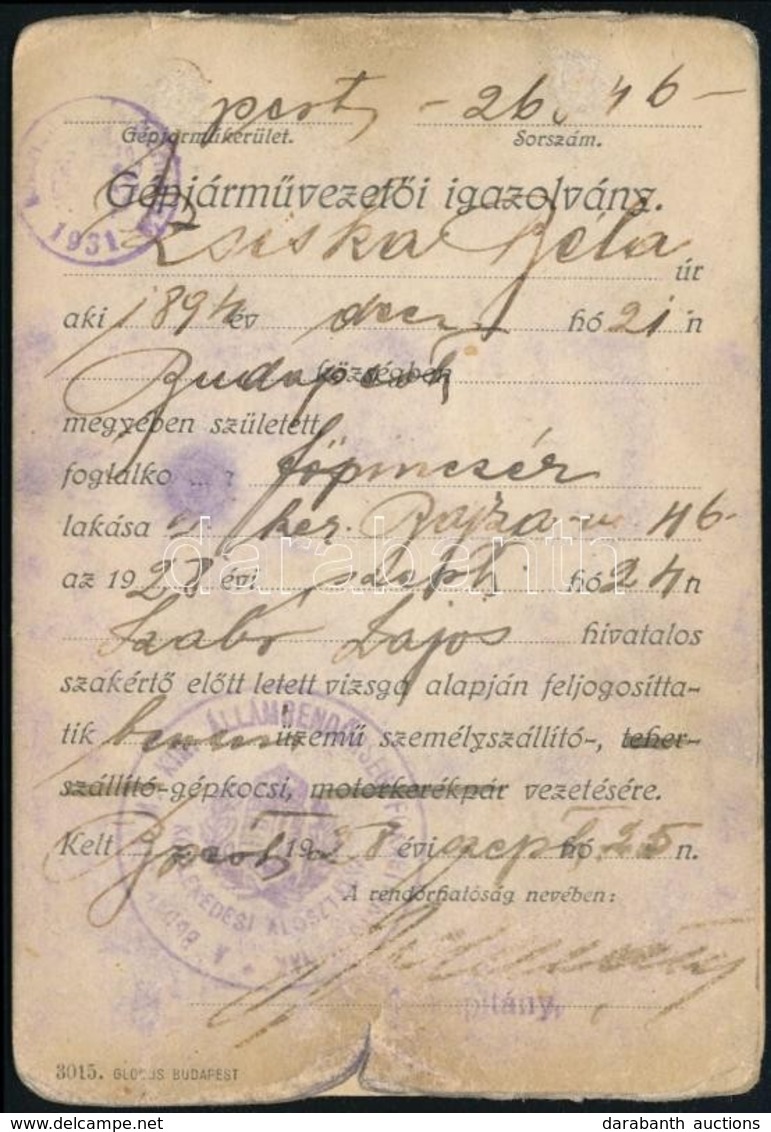 Bpest, - 26.846 -
Gépjárműkerület. Sorszám.
Gépjárművezetői igazolvány.
Zsiska Béla úr
aki 1894 év dec. hó 21 n
Budapest községben
megyében született,
foglalko főpincsér
lakása ker. Bajza-u. 46-
az 1928 évi szept. hó 24 n
Szabó Lajos hivatalos
szakértő előtt letett vizsga alapján feljogosítta-
tik benzin üzemű személyszállító-, teher-
szállító-gépkocsi, motorkerékpár vezetésére.
Kelt Bpest, 1928 évi szept. hó 25 n.
A rendőrhatóság nevében:
3015. GLOBUS BUDAPEST
1931
ÁLLAMRENDŐRSÉG
KÖZLEKEDÉSI ALOSZTÁLY
darabanth
darabanth auctions